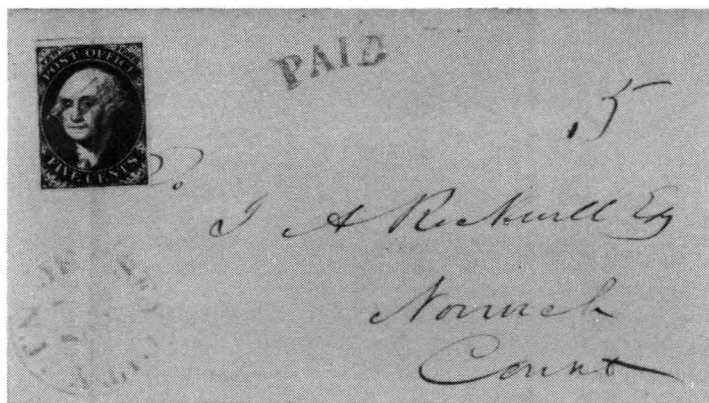 POST OFFICE
FIVE CENTS
PAID
5
J A Rockwell Esq
Norwich
Connt